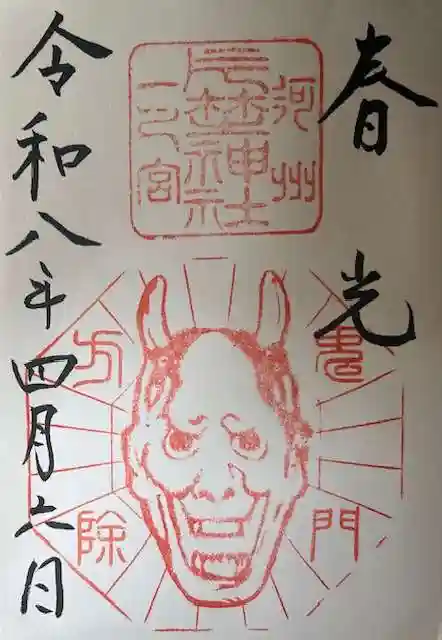 春光
河州
片埜神社
一之宮
鬼門
方除
令和八年四月六日